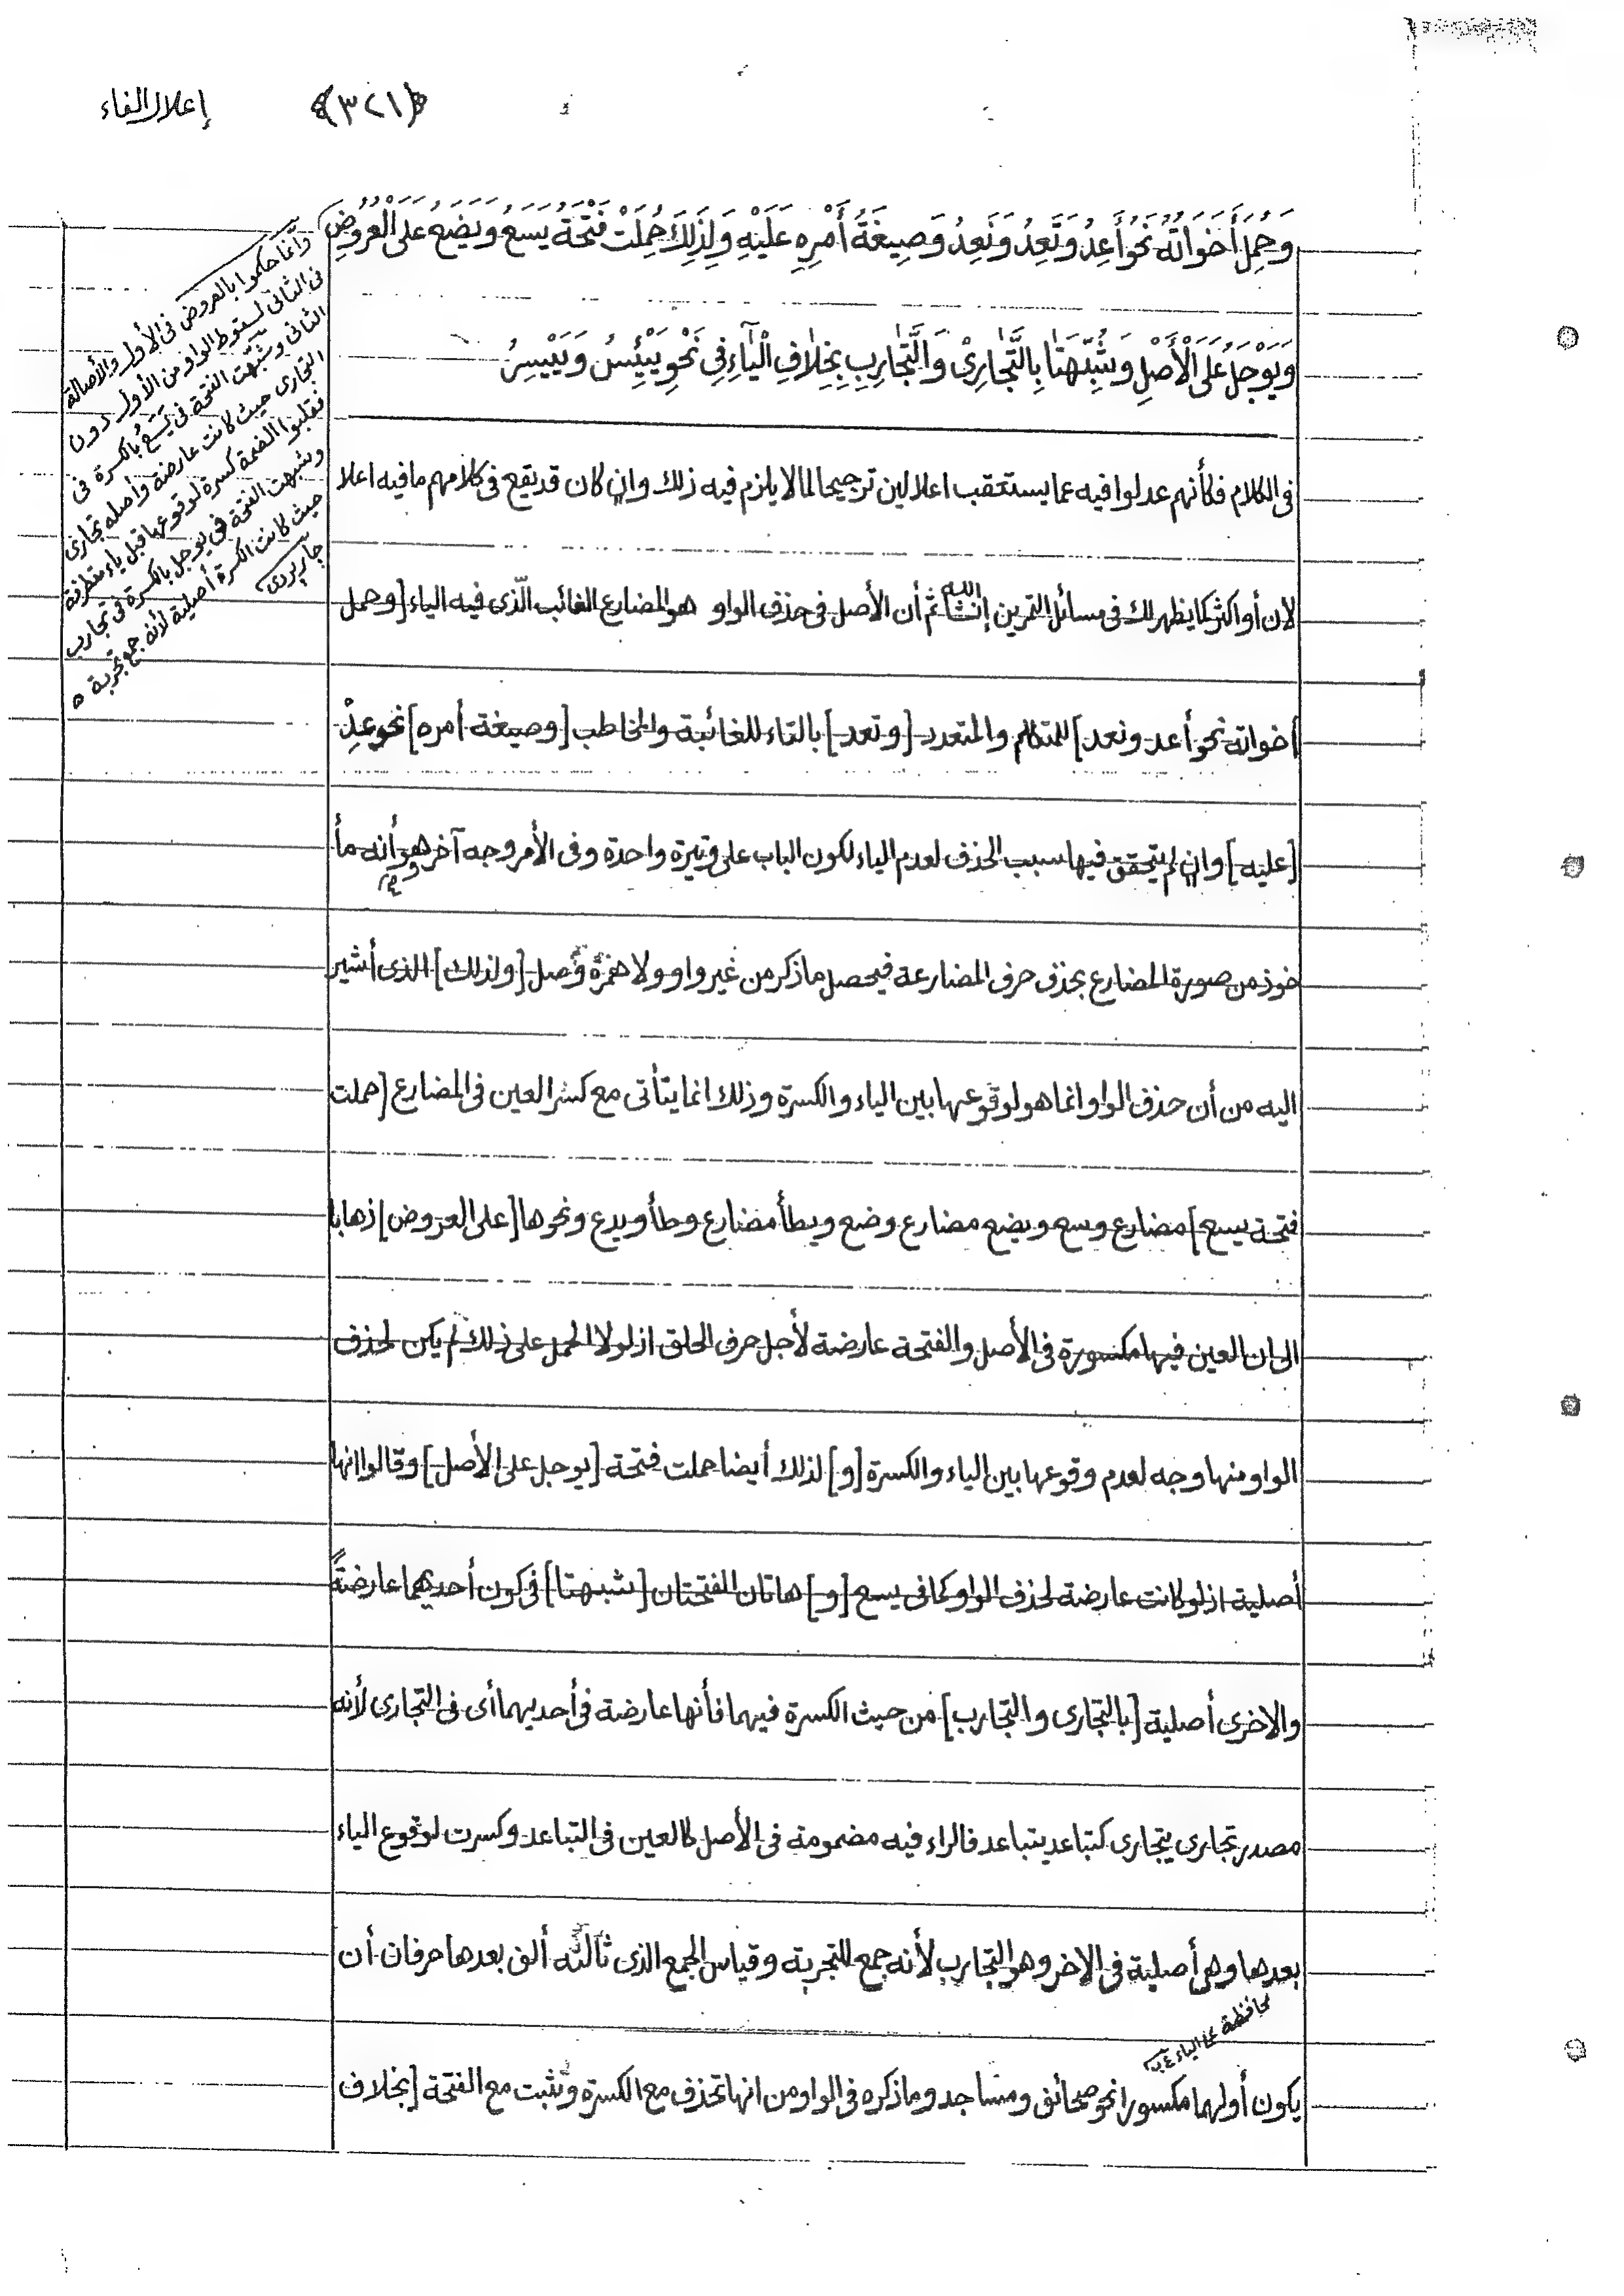 إعلال الفاء
﴿٣٢١﴾
وَحُمِلَ أَخَوَاتُهُ نَحْوُ أَعِدُ وَتَعِدُ وَنَعِدُ وَصِيغَةُ أَمْرِهِ عَلَيْهِ وَلِذَلِكَ حُمِلَتْ فَتْحَةُ يَسَعُ وَيَضَعُ عَلَى الْعُرُوضِ
وَيَوْجَلُ عَلَى الْأَصْلِ وَشُبِّهَتَا بِالتَّجَارِيْ وَالتَّجَارِبِ بِخِلَافِ الْيَاءِ فِي نَحْوِ يَيْئِسُ وَيَيْسِرُ
فى الكلام فكأنهم عدلوا فيه عما يستعقب اعلالين ترجيحا لما لا يلزم فيه ذلك وان كان قد يقع فى كلامهم ما فيه اعلا
لان أو اكثر كما يظهر لك فى مسائل التمرين إنشاء الله ثم أن الأصل فى حذف الواو هو المضارع الغائب الّذى فيه الياء [وحمل
أخواته نحو أعد ونعد] للمتكلم والمتعدد [وتعد] بالتاء للغائبة والمخاطب [وصيغة أمره] نحو عِدْ
[عليه] وان لم يتحقق فيها سبب الحذف لعدم الياء لكون الباب على وتيرة واحدة وفى الأمر وجه آخر وهو أنه مأ
خوذ من صورة المضارع بحذف حرف المضارعة فيحصل ما ذكر من غير واو ولا همزة وصل [ولذلك] الذى أشير
اليه من أن حذف الواو انما هو لوقوعها بين الياء والكسرة وذلك انما يتأتى مع كسر العين فى المضارع [حملت
فتحة يسع] مضارع وسع ويضع مضارع وضع ويطأ مضارع وطأ ويدع ونحوها [على العروض] ذهابا
الى ان العين فيها مكسورة فى الأصل والفتحة عارضة لأجل حرف الحلق اذ لولا الحمل على ذلك لم يكن لحذف
الواو منها وجه لعدم وقوعها بين الياء والكسرة [و] لذلك أيضا حملت فتحة [يوجل على الأصل] وقالوا انها
أصلية اذ لو كانت عارضة لحذف الواو كما فى يسع [و] هاتان الفتحتان [شبهتا] فى كون أحديهما عارضةً
والاخرى أصلية [بالتجارى والتجارب] من حيث الكسرة فيهما فأنها عارضة فى أحديهما أى فى التجارى لأنه
مصدر تجارى يتجارى كتباعد يتباعد فالراء فيه مضمومة فى الأصل كالعين فى التباعد وكسرت لوقوع الياء
بعدها وهى أصلية فى الاخر وهو التجارب لأنه جمع للتجربة وقياس الجمع الذى ثالثه ألف بعدها حرفان أن
محافظة على الياء
يكون أولهما مكسورا نحو صحائف ومساجد وما ذكره فى الواو من انها تحذف مع الكسرة وتثبت مع الفتحة [بخلاف
وانّما حكموا بالعروض فى الأول والأصالة
فى الثانى لسقوط الواو من الأول دون
الثانى وشبّهت الفتحة فى يَسَعُ بالكسرة فى
التجارى حيث كانت عارضة وأصله تجارى
فقلبوا الضمة كسرة لوقوعها قبل ياء متطرفة
وشبهت الفتحة فى يوجل بالكسرة فى تجارب
حيث كانت الكسرة أصلية لأنه جمع تجربة ٥
جاربردى